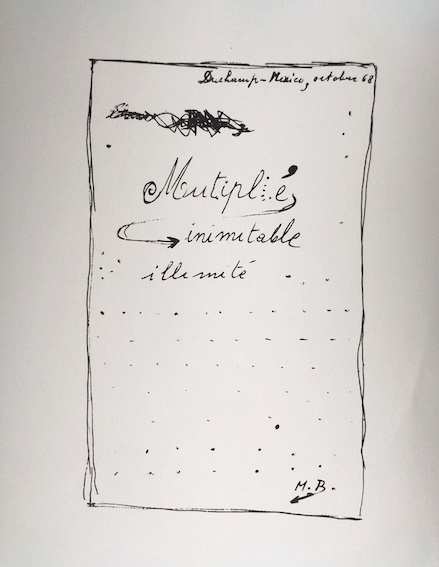 Duchamp – Mexico, octobre 68
Mutiplié,
inimitable
illimité
M.B.